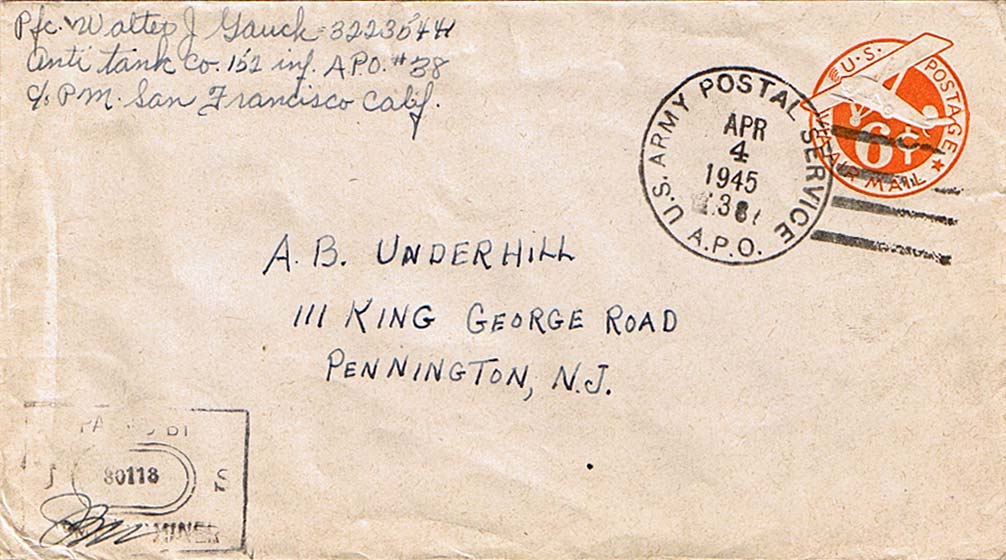 Pfc. Walter J Gauck - 32235441
Anti tank Co. 152 inf. A.P.O. #38
c/o P.M. San Francisco Calif.
U.S. ARMY POSTAL SERVICE
APR
4
1945
A.P.O.
U.S. POSTAGE
6¢
VIA AIR MAIL
A. B. UNDERHILL
111 KING GEORGE ROAD
PENNINGTON, N.J.
80118
S